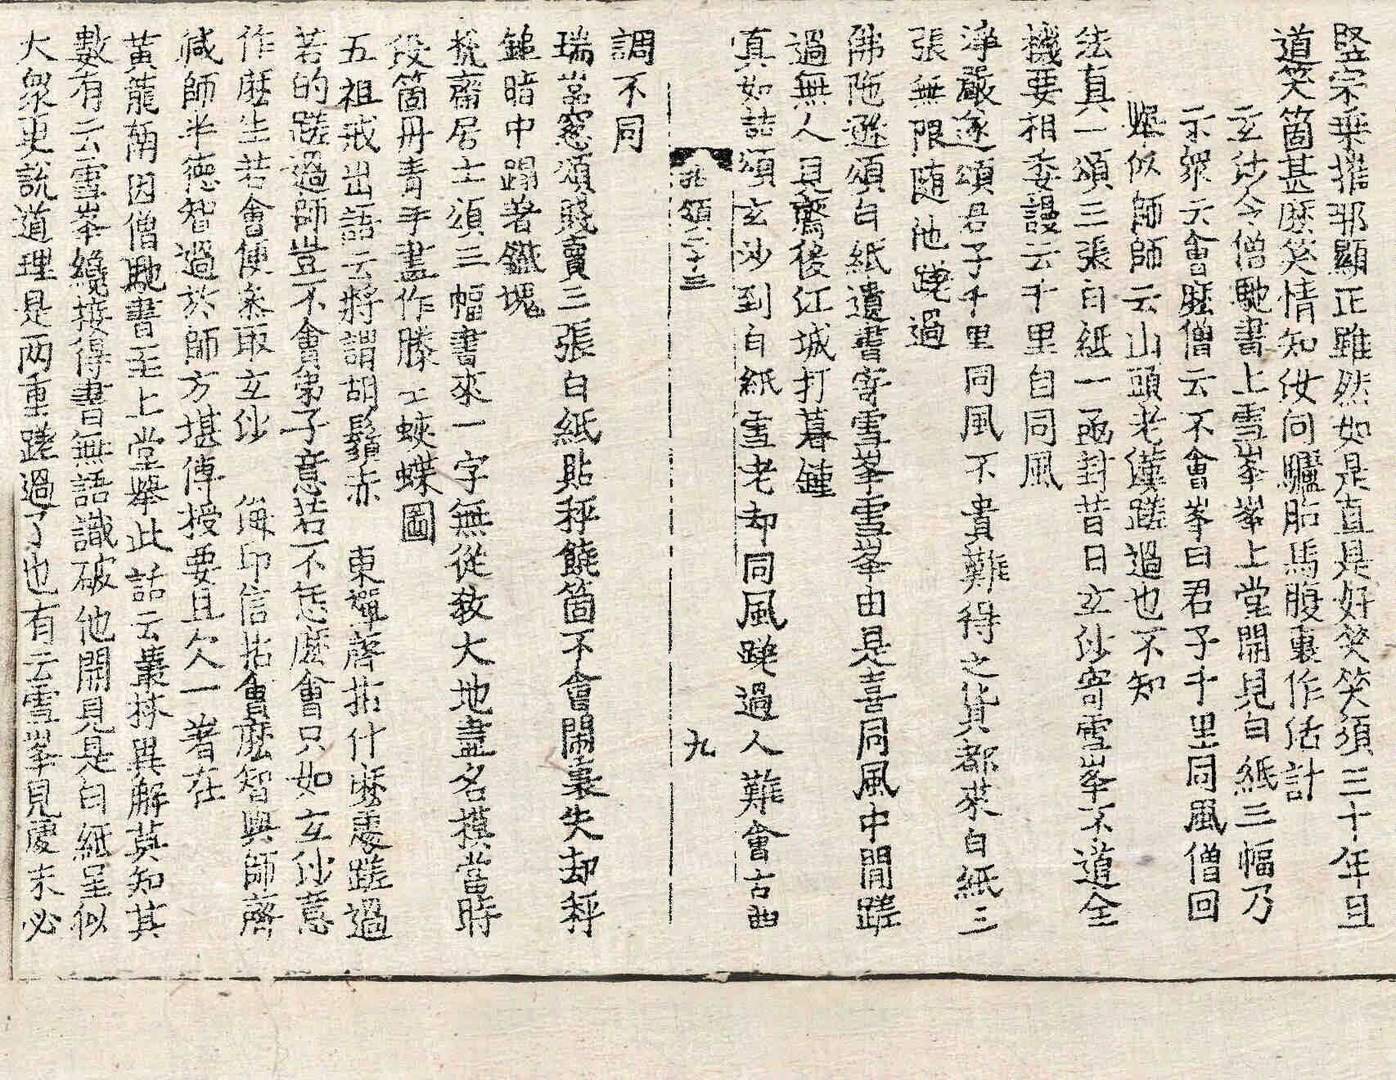 竪宗乘摧邪顯正雖然如是直是好笑笑須三十年且
道笑箇甚麽笑情知汝向驢胎馬腹裏作活計
玄沙令僧馳書上雪峯峯上堂開見白紙三幅乃
示衆云會麽僧云不會峯曰君子千里同風僧回
擧似師師云山頭老漢蹉過也不知
法真一頌三張白紙一函封昔日玄沙寄雪峯不道全
機要相委謾云千里自同風
淨嚴遂頌君子千里同風不貴難得之貨都來白紙三
張無限随他蹉過
佛陁遜頌白紙遺書寄雪峯雪峯由是喜同風中間蹉
過無人見齋後江城打暮鍾
真如喆頌玄沙到白紙雪老却同風蹉過人難會古曲
拈頌二十三
九
調不同
瑞嵓寃頌賤賣三張白紙貼秤饒箇不會閙裏失却秤
鎚暗中踢著鐵塊
梵齋居士頌三幅書來一字無從敎大地盡名摸當時
段箇丹青手畫作滕王蛺蝶圖
五祖戒出語云將謂胡鬚赤 東禪齊拈什麽處蹉過
若的蹉過師豈不會弟子意若不恁麽會只如玄沙意
作麽生若會便叅取玄沙 佛印信拈會麽智與師齊
减師半德智過於師方堪傳授要且欠一著在
黃龍南因僧馳書至上堂擧此話云叢林異解莫知其
數有云雪峯纔接得書無語識破他開見是白紙呈似
大衆更說道理是两重蹉過了也有云雪峯見處未必